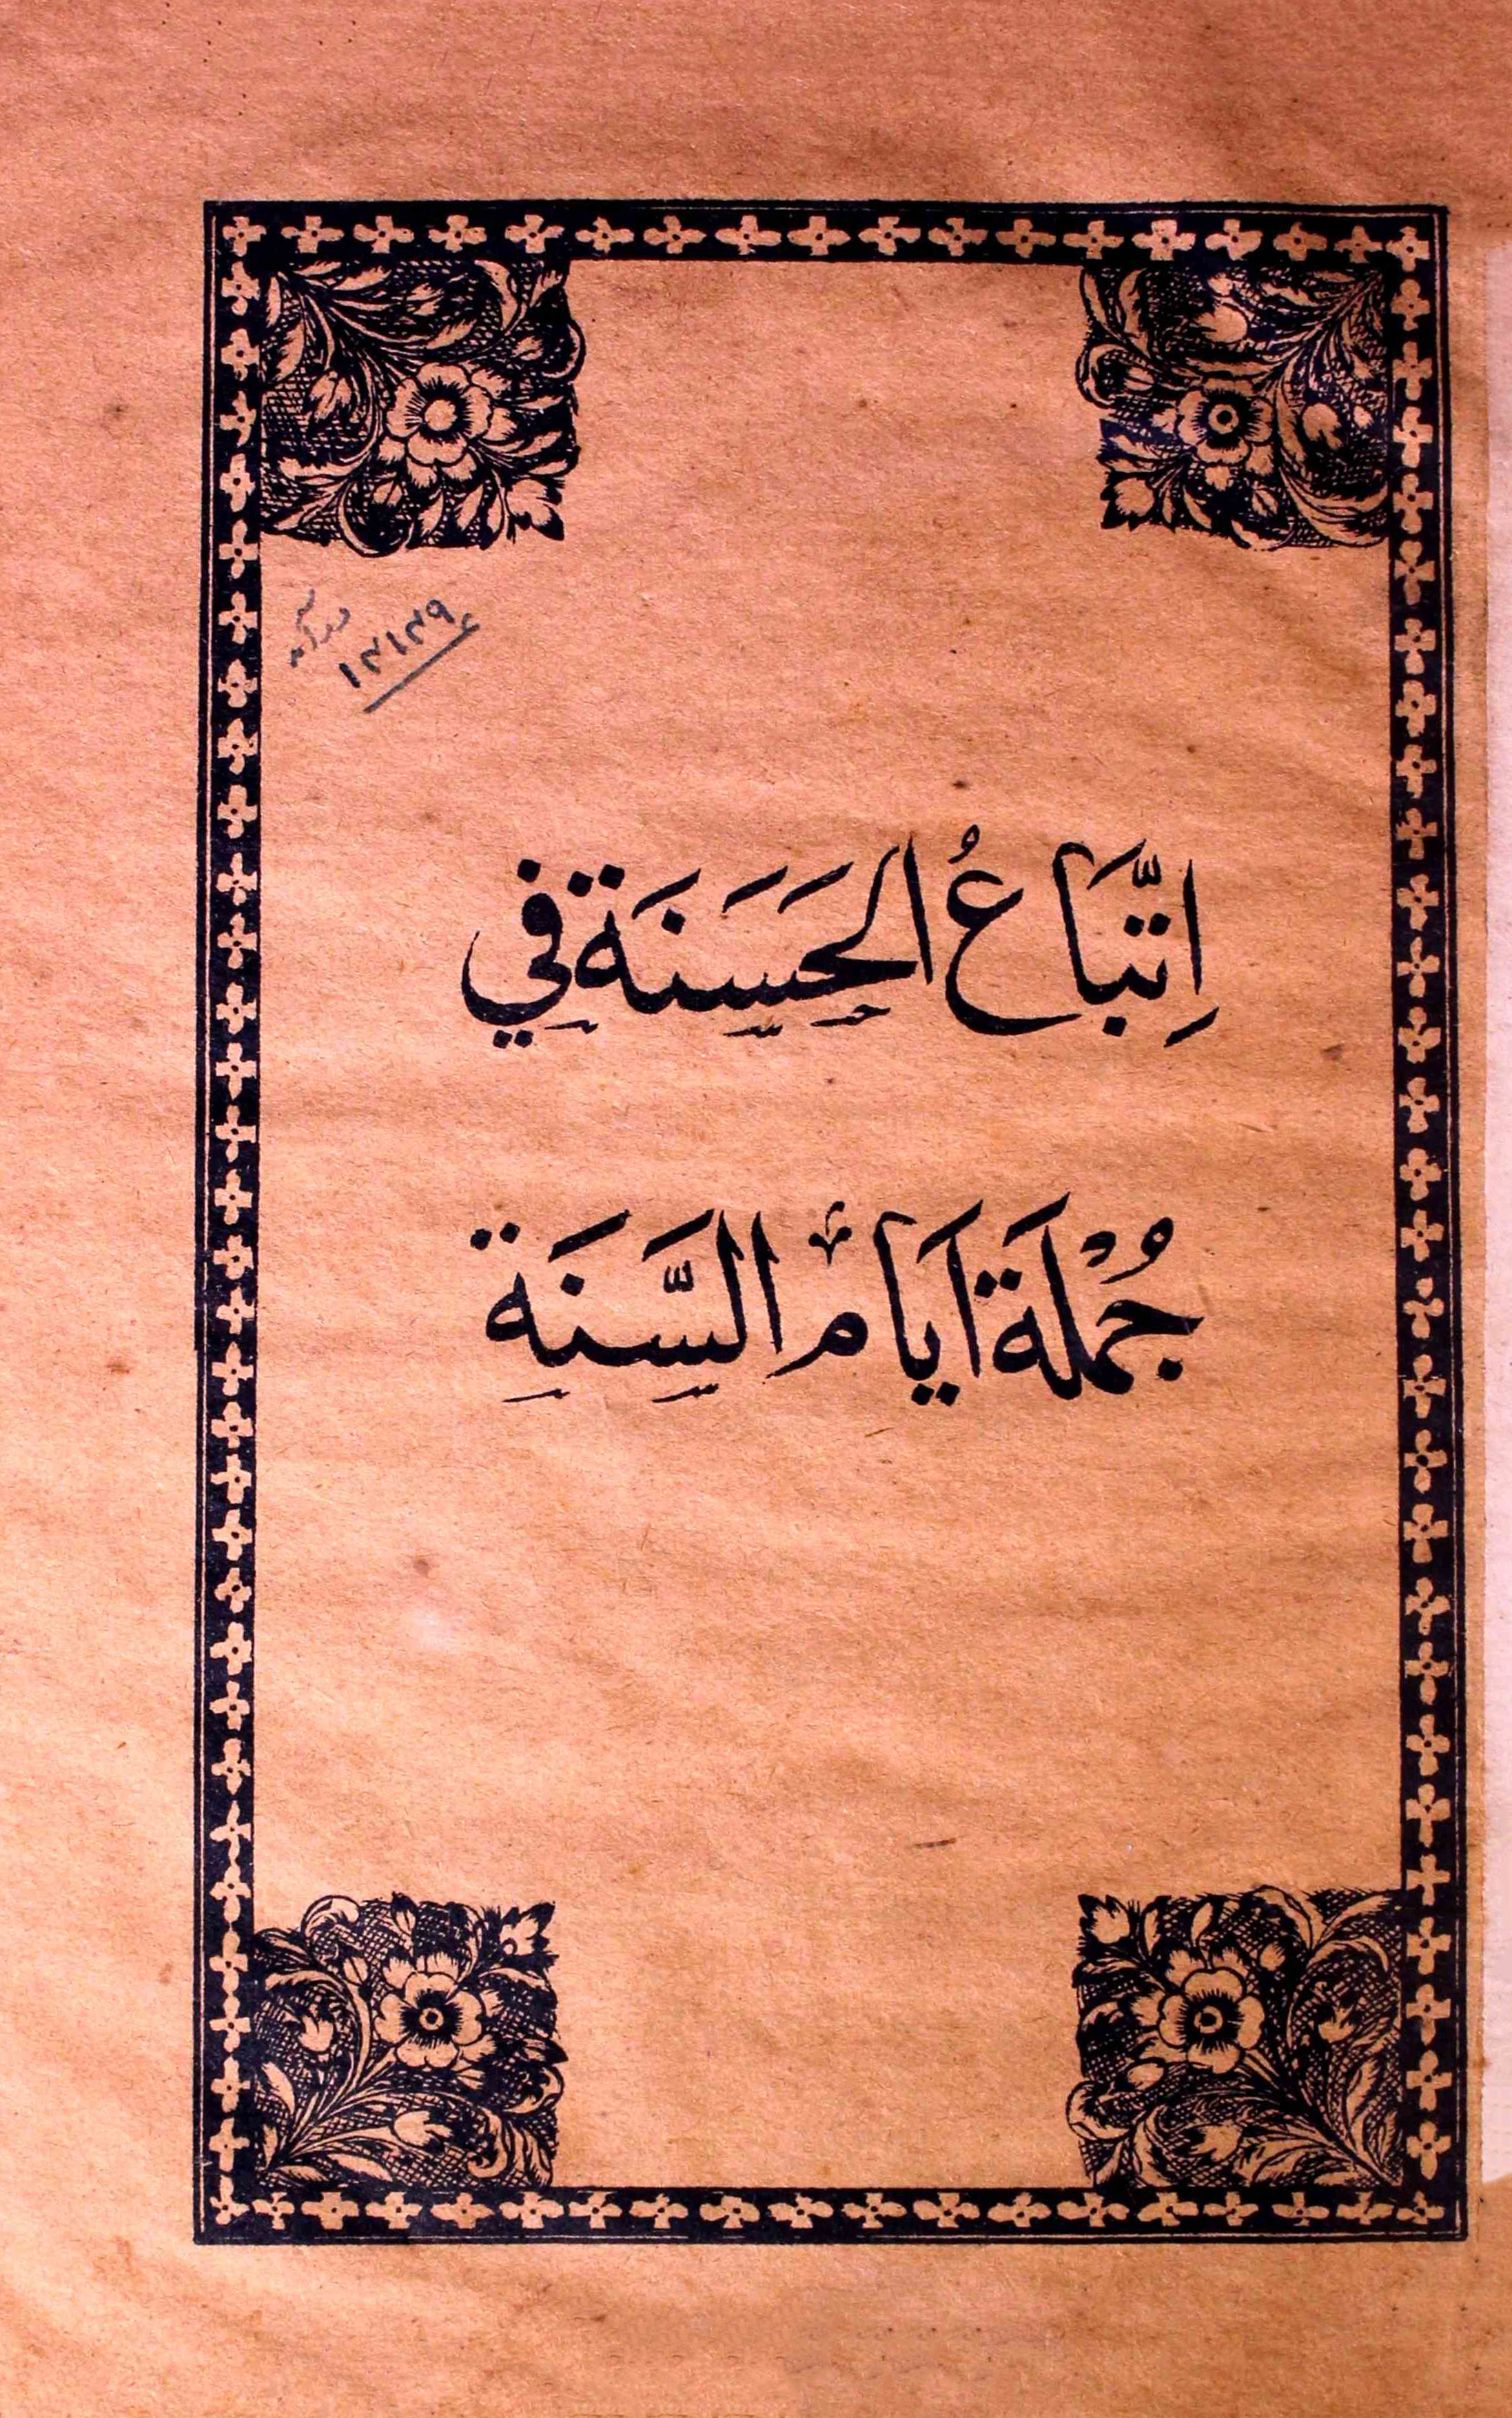 ۱۲۱۲۹
اِتِّبَاعُ الحَسَنَةِ فِي
جُمْلَةِ اَيَّامِ السَّنَةِ